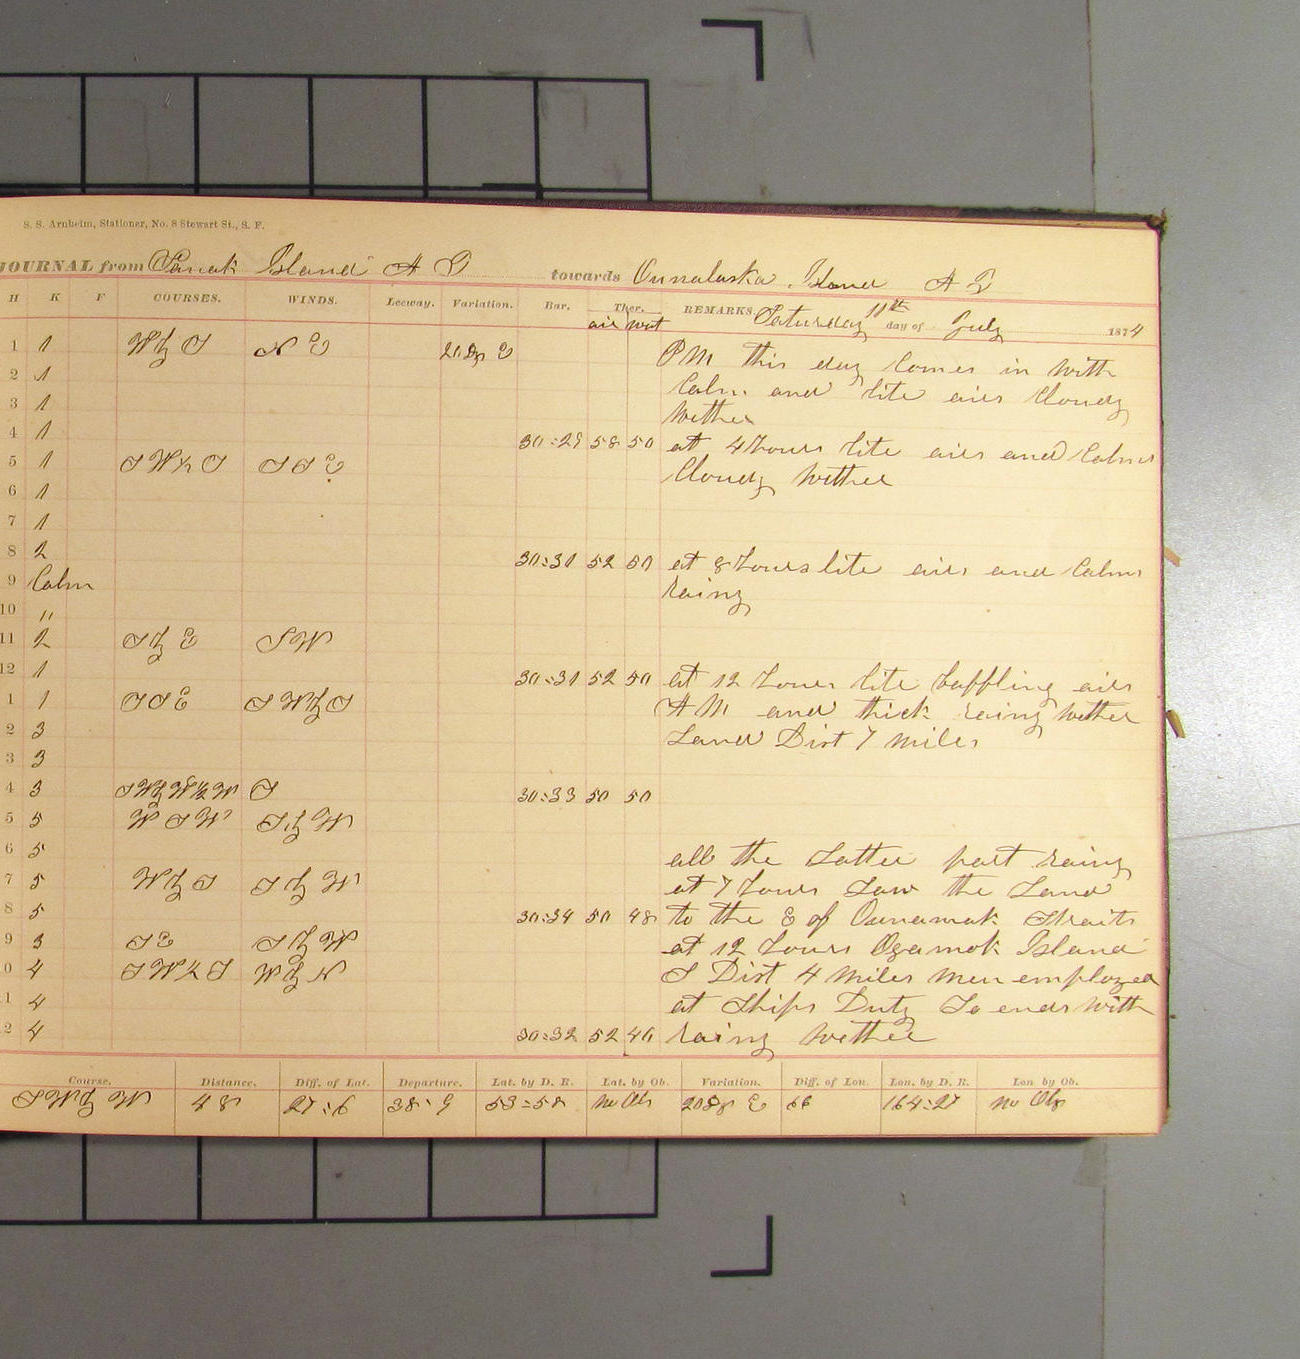 S. S. Arnheim, Stationer, No. 8 Stewart St., S. F.
JOURNAL from Sanak Island A T towards Ounalaska Island A T
H K F COURSES. WINDS. Leeway. Variation. Bar. Ther. REMARKS Saturday 11th day of July 1874
air wat
1 1 W by S N E 20 Dg E PM this day Comes in with
2 1 Calm and lite airs Cloudy
3 1 wether
4 1 30=29 58 50 at 4 hours lite airs and Calms
5 1 S W ½ S S S E Cloudy wether
6 1
7 1
8 2 30=31 52 50 at 8 hours lite airs and Calms
9 Calm rainy
10 "
11 2 S by E S W
12 1 30=31 52 50 at 12 hours lite baffling airs
1 1 S S E S W by S A M and thick rainy wether
2 3 Land Dist 7 miles
3 3
4 3 S W by W ½ W S 30=33 50 50
5 5 W S W S by W
6 5 all the Latter part rainy
7 5 W by S S by W at 7 hours Saw the Land
8 5 30=34 50 48 to the E of Ounamak Straits
9 3 S E S by W at 12 hours Ogamok Island
0 4 S W ½ S W by N S Dist 4 miles men employed
1 4 at Ships Duty So ends with
2 4 30=32 52 46 rainy wether
Course. Distance. Diff. of Lat. Departure. Lat. by D. R. Lat. by Ob. Variation. Diff. of Lon. Lon. by D. R. Lon by Ob.
S W by W 48 27=6 38=9 53=58 no Obs 20 Dg E 66 164=27 no Obs